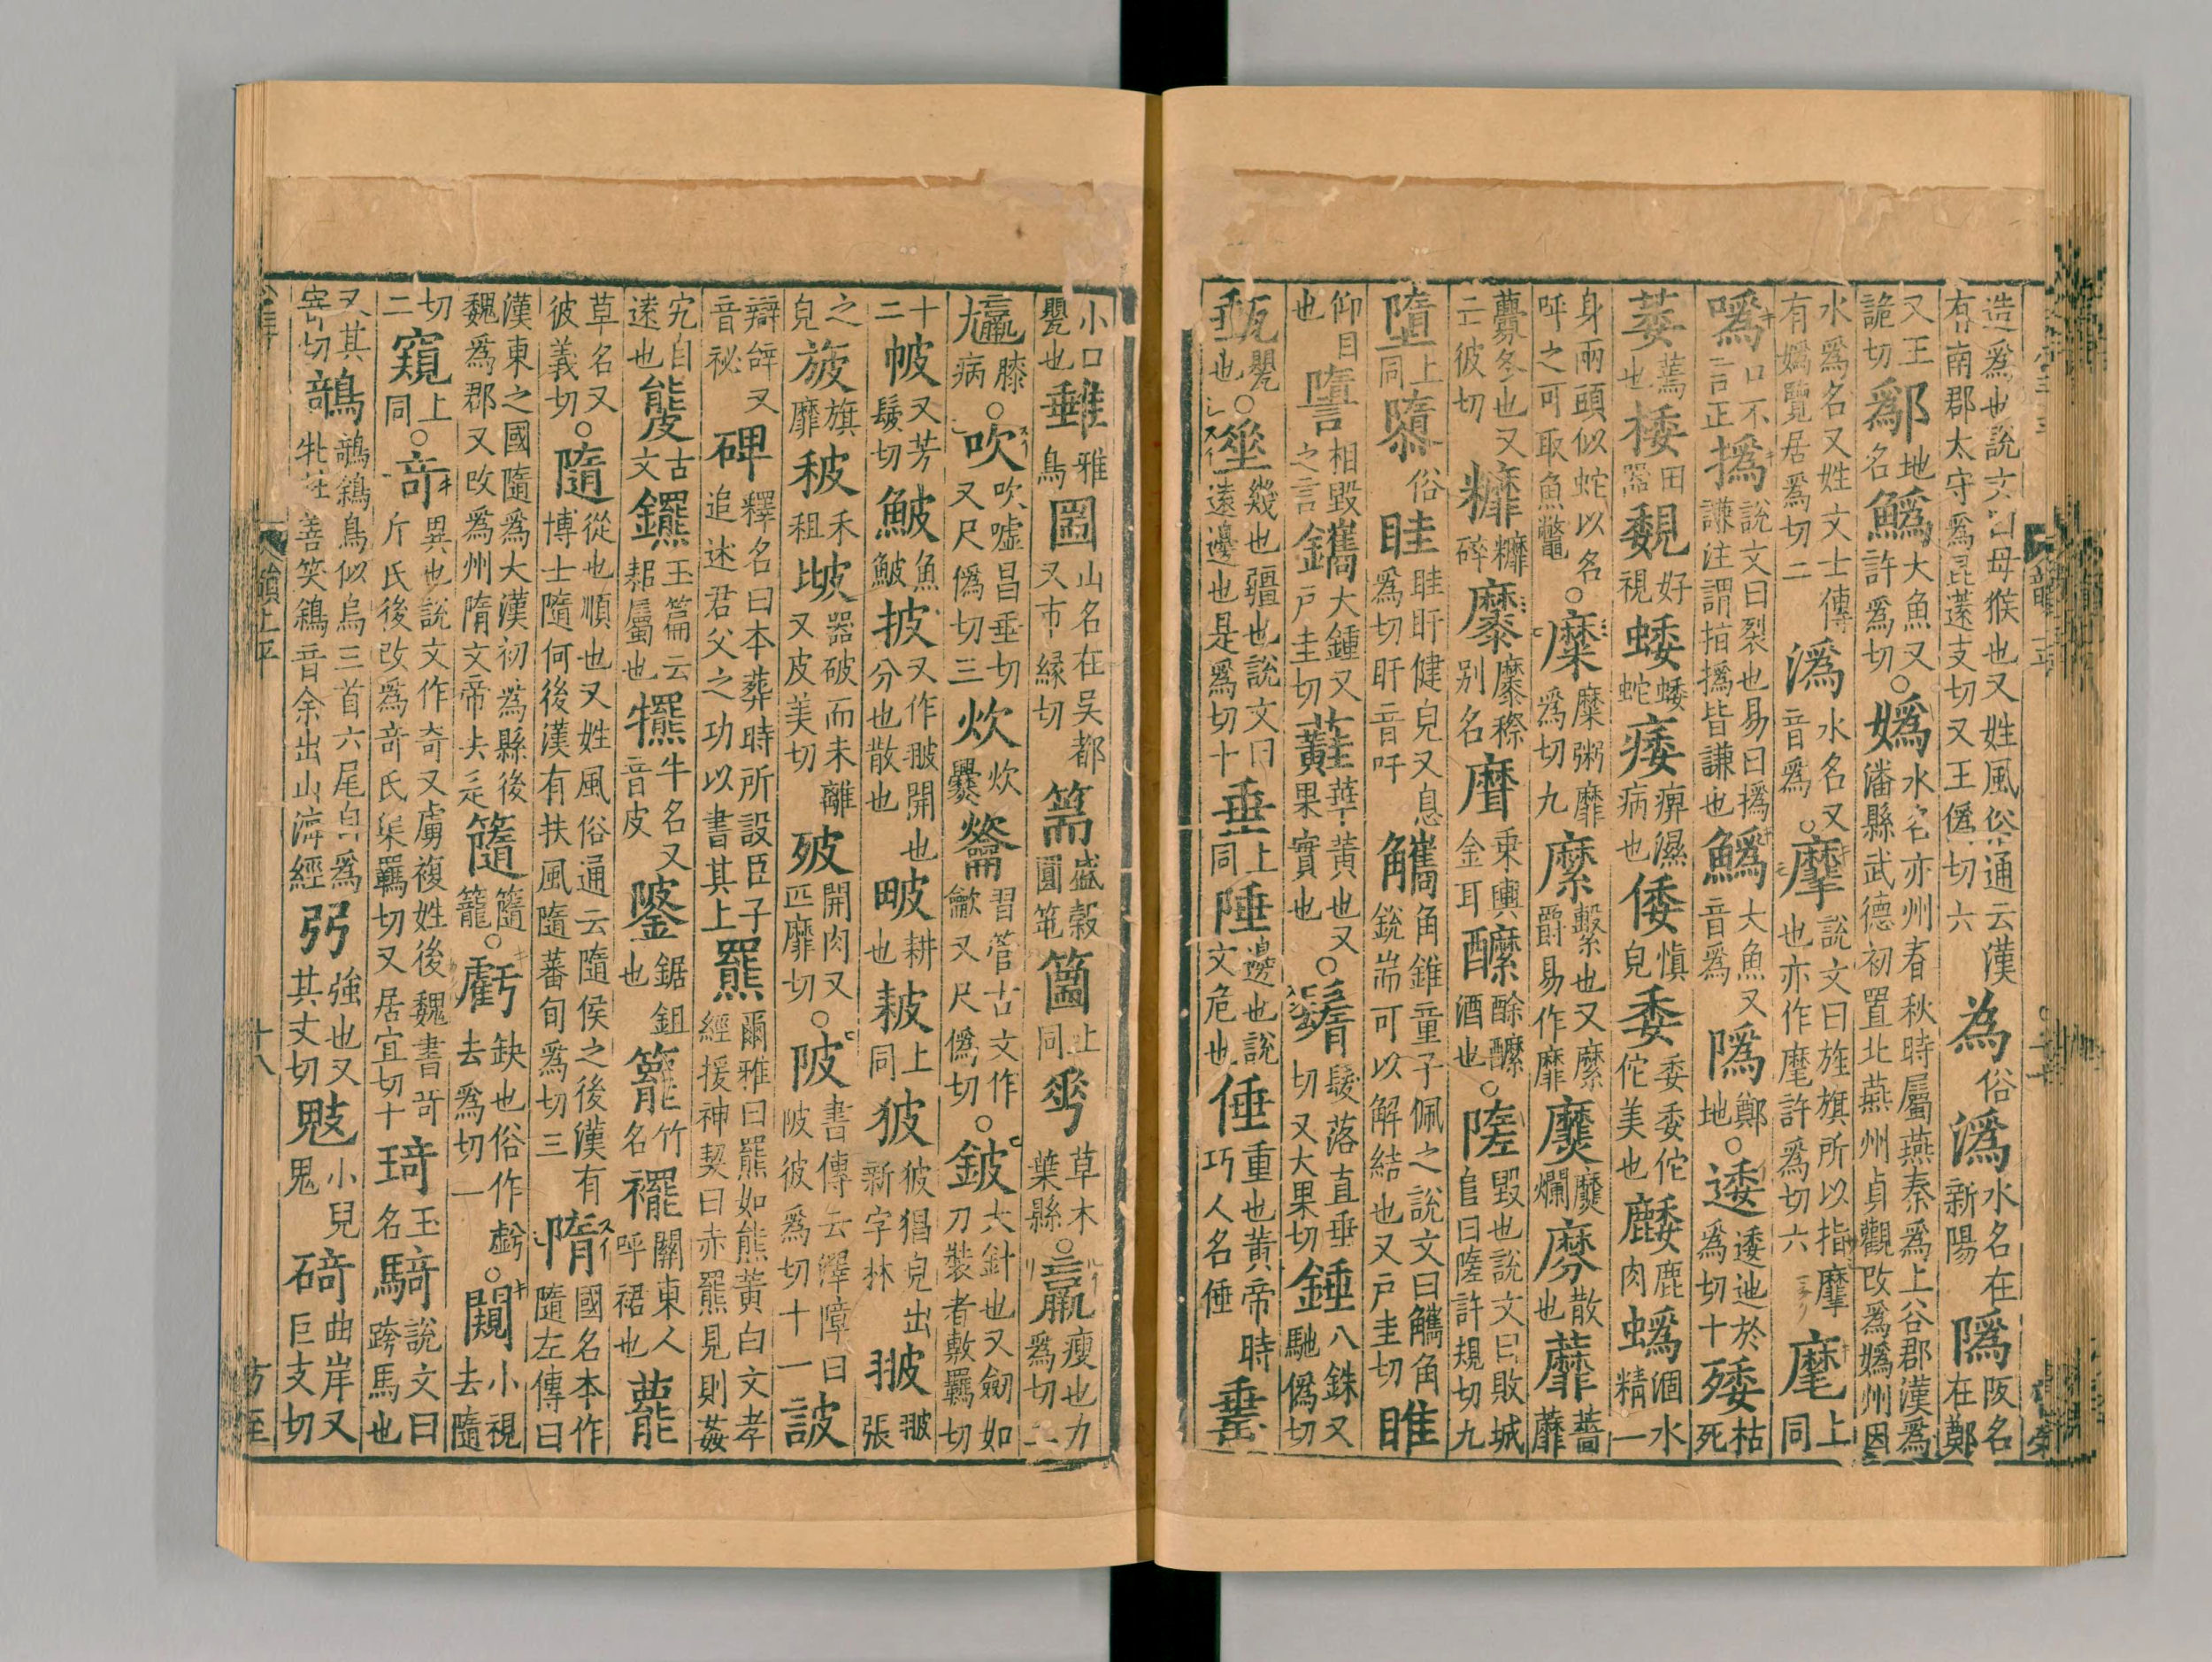 造爲也說文曰母猴也又姓風俗通云漢有南郡太守爲昆薳支切又王僞切六 為俗 潙水名在新陽 隝阪名在鄭
又王詭切 鄬地名 鰞大魚又許爲切○嬀水名亦州春秋時屬燕秦爲上谷郡漢爲潘縣武德初置北燕州貞觀改爲嬀州因
水爲名又姓文士傳有嬀覽居爲切二 潙水名又音爲○摩說文曰旌旗所以指摩也亦作麾許爲切六 麾上同
噅口不言正 撝說文曰裂也易曰撝謙注謂指撝皆謙也 鰞大魚又音爲 隝鄭地○逶逶迆於爲切十 矮枯死
萎蔫也 㮃田器 覣好視 蜲蜲蛇 痿痹濕病也 倭愼皃 委委委佗佗美也 䴧鹿肉 蟡涸水精一
身兩頭似蛇以名呼之可取魚鼈○糜糜粥靡爲切九 縻繫也又縻爵易作靡 爛 散也 蘼薔蘼
虋冬也又亡彼切 糠碎 穄別名 乘輿金耳 醿酴醿酒也○隓毀也說文曰敗城𨸏曰隓許規切九
墮上同 隳俗 眭眭盱健皃又息爲切盱音吁 觿角錐童子佩之說文曰觿角銳耑可以解結也又戶圭切 睢
仰目也 相毀之言 鑴大鍾又戶圭切 蘳華黃也又果實也○髮落直垂切又大果切 錘八銖又馳僞切
甀甖也○幾也疆也說文曰遠邊也是爲切十 垂上同 陲邊也說文危也 倕重也黃帝時巧人名倕
小口甖也 雅鳥 圌山名在吳都又市緣切 篅盛穀圓笔 上同 草木葉縣○羸瘦也力爲切二
膝病○吹吹噓昌垂切又尺僞切三 炊炊爨 習管古文作又尺僞切○鈹大針也又劒如刀裝者敷羈切
十二 帔又芳髲切 鮍魚鮍 披又作翍開也分也散也 耕也 耚上同 狓狓猖皃出新字林 翍翍張
之皃 旇旗靡 秛禾租 器破而未離又皮美切 開肉又匹靡切○陂書傳云澤障曰陂彼爲切十一 詖
辯辭又音祕 碑釋名曰本葬時所設臣子追述君父之功以書其上 羆爾雅曰羆如熊黃白文孝經援神契曰赤羆見則姦
宄自遠也 古文 玉篇云耜屬也 犤牛名又音皮 鋸鉏也 竹名 襬關東人呼裙也 藣
草名又彼義切○隨從也順也又姓風俗通云隨侯之後漢有博士隨何後漢有扶風隨蕃旬爲切三 隋國名本作隨左傳曰
漢東之國隨爲大漢初爲縣後魏爲郡又改爲州隋文帝去辵 籠○虧缺也俗作去爲切一○闚小視去隨
切二 窺上同○奇異也說文作奇又虜複姓後魏書奇斤氏後改爲奇氏渠羈切又居宜切十 琦玉名 騎說文曰跨馬也
又其寄切 鵸鵸鵌鳥似烏三首六尾自爲牝牡善笑鵌音余出山海經 弜強也又其丈切 鬾小兒鬼 碕曲岸又巨支切
韻上平 十八 方至